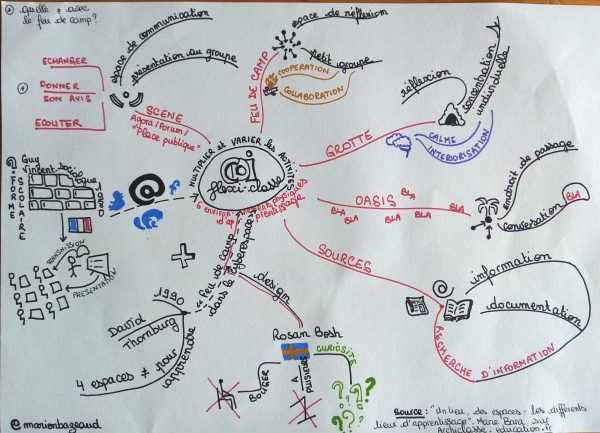 quelle ≠ avec
le feu de camp?
ECHANGER
DONNER
SON AVIS
ECOUTER
espace de communication
présentation au groupe
SCENE
Agora/Forum/
"Place publique"
FEU DE CAMP
espace de réflexion
petit groupe
COOPERATION
COLLABORATION
GROTTE
réflexion
concentration
individuelle
CALME
INTERIORISATION
MULTIPLIER et VARIER les ACTIVITES
flexi-classe
OASIS
BLA
BLA
BLA
BLA
BLA
BLA
BLA
endroit de passage
conversation
BLA
SOURCES
information
documentation
RECHERCHE
D'INFORMATION
FORME
SCOLAIRE
Guy
Vincent
sociologue
TRANSMISSION
PRESENTATION
@
f
feu de camp
dans le cyberespace
1990
David
Thornburg
4 espaces ≠ pour
apprendre
design
Rosan Bosh
BOUGER
A
PLUSIEURS
CURIOSITE
? ? ? ? ?
@marionbageaud
Source: "Un lieu, des espaces: les différents
lieux d'apprentissage". Marie Bara sur
Archiclasse.education.fr